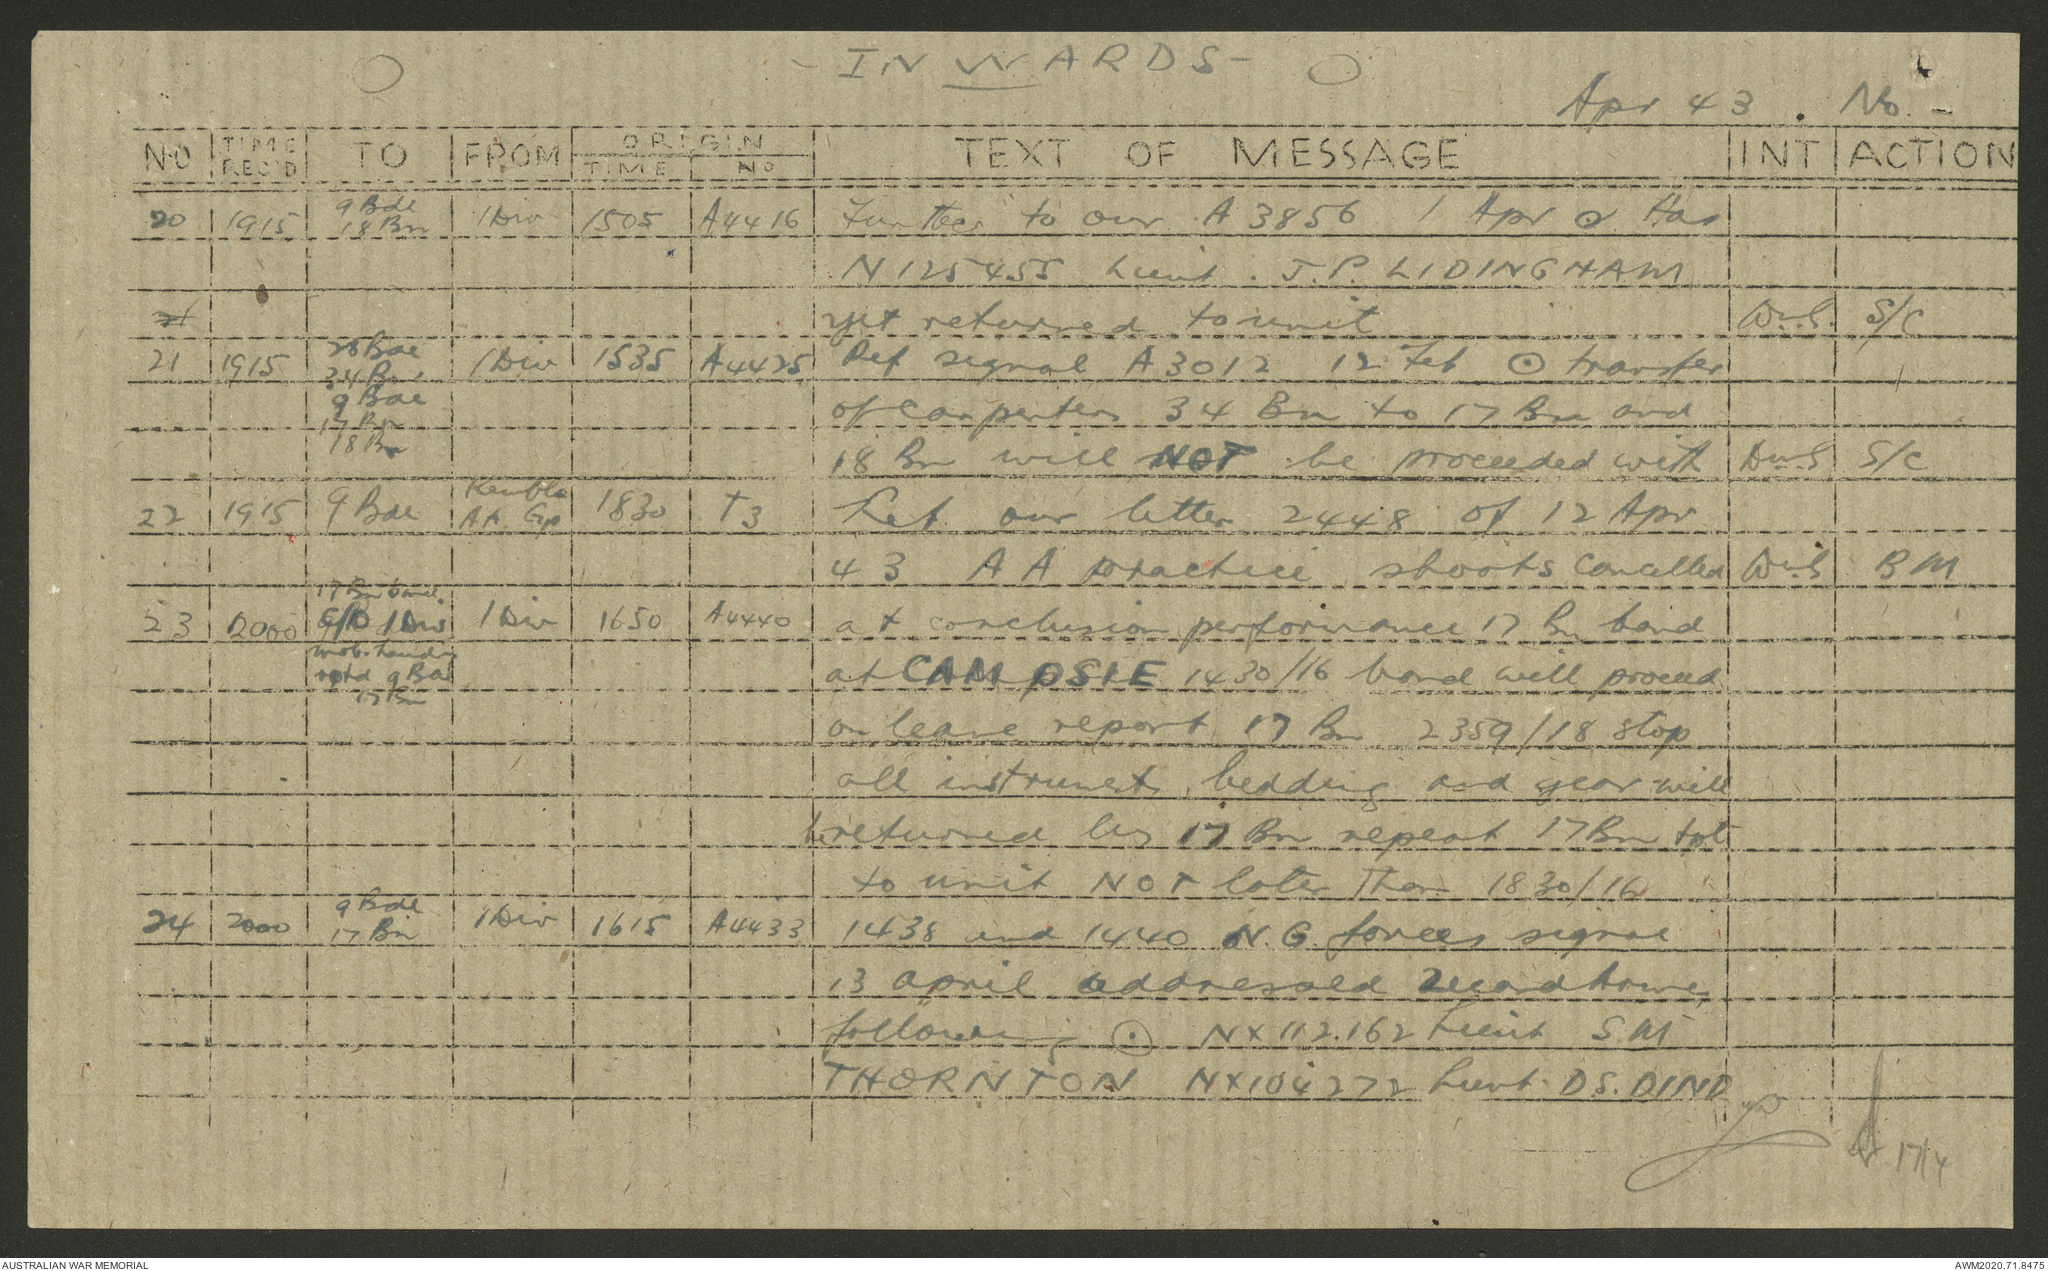 - INWARDS -
Apr 43. No. -
NO TIME REC'D TO FROM ORIGIN TIME NO TEXT OF MESSAGE INT ACTION
20 1915 9 Bde 18 Bn 1 Div 1505 A4416 Further to our A3856 1 Apr ⊙ Has
N125455 Lieut. J.P. LIDINGHAM
21 yet returned to unit S/C
21 1915 28 Bde 34 Bn 1 Div 1535 A4425 Ref signal A3012 12 Feb ⊙ transfer
9 Bde 17 Bn of carpenters 34 Bn to 17 Bn and
18 Bn 18 Bn will NOT be proceeded with S/C
22 1915 9 Bde Kembla AA Gp 1830 T3 Ref our letter 2448 of 12 Apr
43 AA practice shoots cancelled BM
23 2000 17 Bn band C/O 1 Div 1 Div 1650 A4440 at conclusion performance 17 Bn band
rptd 9 Bde 17 Bn at CAMPSIE 1430/16 band will proceed
on leave report 17 Bn 2359/18 stop
all instruments, bedding and gear will
be returned by 17 Bn repeat 17 Bn tpt
to unit NOT later than 1830/16
24 2000 9 Bde 17 Bn 1 Div 1615 A4433 1438 and 1440 N.G. forces signal
13 April addressed Landhowe
following ⊙ NX112.162 Lieut S M
THORNTON NX104272 Lieut. D S. DIND
17/4
AUSTRALIAN WAR MEMORIAL
AWM2020.71.8475